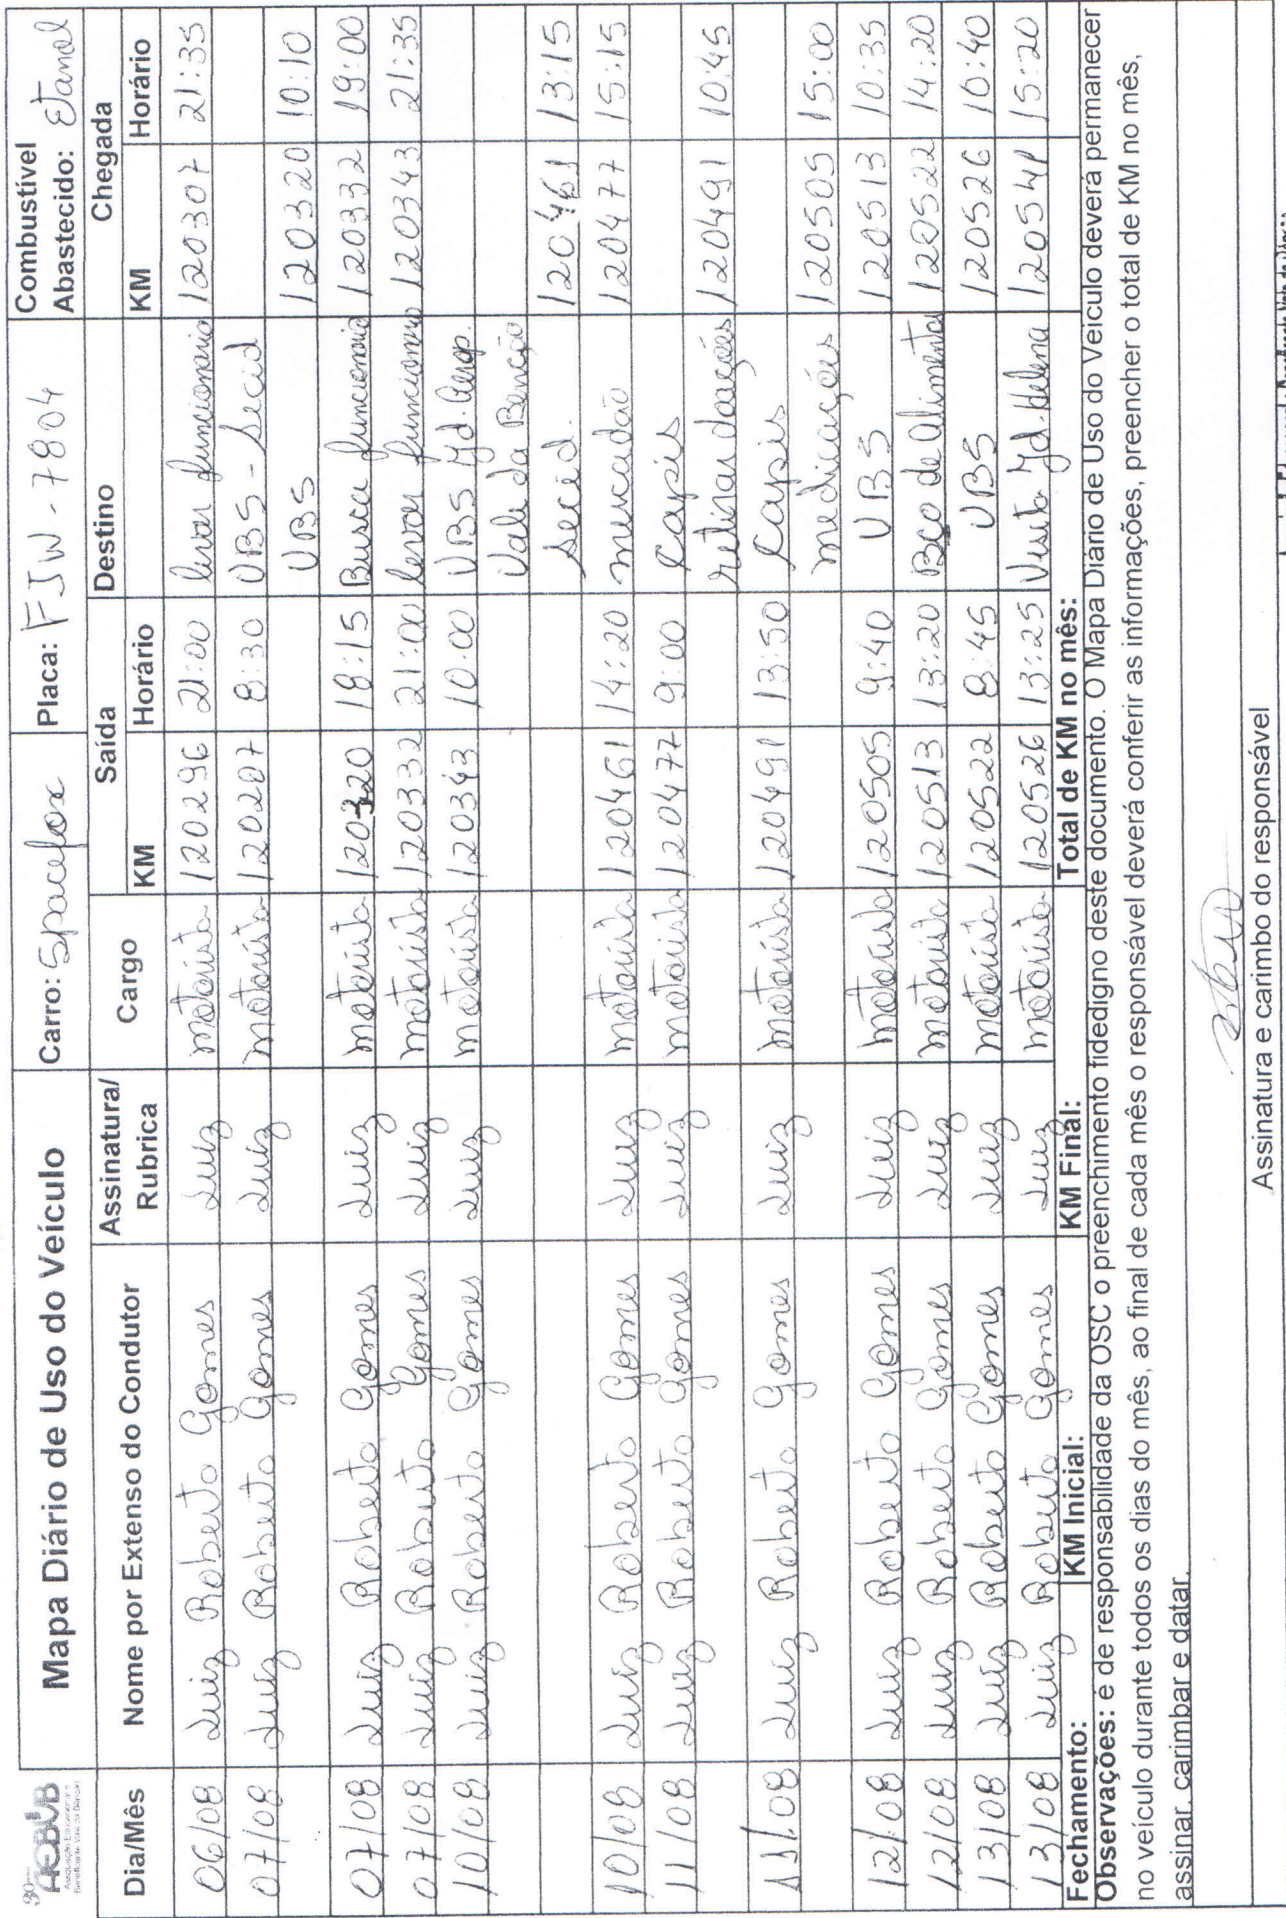 30 anos
AEBVB
Associação Educacional
Beneficente Vale da Benção
Mapa Diário de Uso do Veículo
Carro: Spacefox
Placa: FJW-7804
Combustível
Abastecido: Etanol
Dia/Mês
Nome por Extenso do Condutor
Assinatura/
Rubrica
Cargo
Saída
Destino
Chegada
KM Horário
KM Horário
06/08 Luiz Roberto Gomes Luiz motorista 120296 21:00 levar funcionario 120307 21:35
07/08 Luiz Roberto Gomes Luiz motorista 120207 8:30 UBS - Secid
UBS 120320 10:10
07/08 Luiz Roberto Gomes Luiz motorista 120320 18:15 Busca funcionario 120332 19:00
07/08 Luiz Roberto Gomes Luiz motorista 120332 21:00 levar funcionario 120343 21:35
10/08 Luiz Roberto Gomes Luiz motorista 120343 10:00 UBS Jd. Aerop.
Vale da Benção
Secid. 120461 13:15
10/08 Luiz Roberto Gomes Luiz motorista 120461 14:20 mercadão 120477 15:15
11/08 Luiz Roberto Gomes Luiz motorista 120477 9:00 Capis
retirar doações 120491 10:45
11/08 Luiz Roberto Gomes Luiz motorista 120491 13:50 Capis
medicações 120505 15:00
12/08 Luiz Roberto Gomes Luiz motorista 120505 9:40 UBS 120513 10:35
12/08 Luiz Roberto Gomes Luiz motorista 120513 13:20 Bco de Alimentos 120522 14:20
13/08 Luiz Roberto Gomes Luiz motorista 120522 8:45 UBS 120526 10:40
13/08 Luiz Roberto Gomes Luiz motorista 120526 13:25 Visita Jd. Helena 120541 15:20
Fechamento: KM Inicial: KM Final: Total de KM no mês:
Observações: é de responsabilidade da OSC o preenchimento fidedigno deste documento. O Mapa Diário de Uso do Veículo deverá permanecer
no veículo durante todos os dias do mês, ao final de cada mês o responsável deverá conferir as informações, preencher o total de KM no mês,
assinar, carimbar e datar.
Assinatura e carimbo do responsável